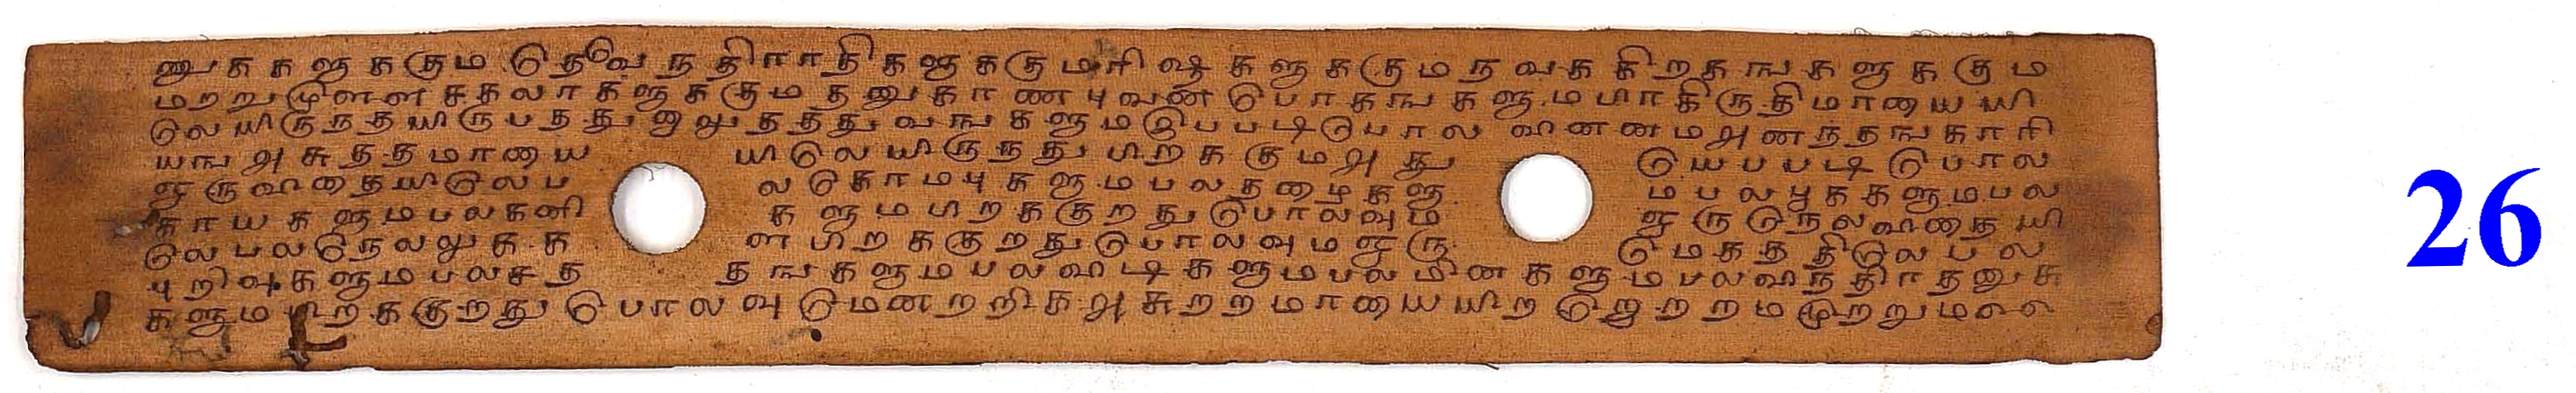 ணுகக ளுககுமதெவநதிராதிகளுககுமரிஷிகளுககுமநவககிறகஙகளுககும
மறறுமுளளசகலாகளுககுமதனுகாணபுவனபொகஙகளுமபிராகிருதிமாயையயி
லெயிருநதயிருபதது லுதததுவஙகளுமஇபபடிபொல பினனமஅனநதஙகாரி
யஙஅசுததமாயை யிலெயிருநதுபிறககுமஅது யெபபடிபொல
ஒருவிதையிலெப லகொமபுகளுமபலதழைகளு மபலபூககளுமபல
காயகளுமபலகனி களுமபிறககுறதுபொலவும ஒருநெலவிதையி
லெபலநெலலுகக ளபிறககுறதுபொலவுமஒரு மெகததிலெபல
புறிவுகளுமபலசத தஙகளுமபலவிடிகளுமபலமினகளுமபலவிநதிரதனுசு
களுமபிறககுறதுபொலவுமெனறறிகஅசுறறமாயையயிறறெறுறறமமுறறும
26